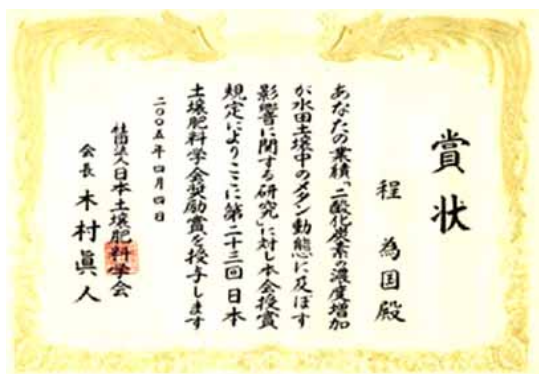 賞状
程 為国殿
あなたの業績「二酸化炭素の濃度増加
が水田土壌中のメタン動態に及ぼす
影響に関する研究」に対し本会授賞
規定によりここに第二十三回日本
土壌肥料学会奨励賞を授与します
二〇〇五年四月四日
社団法人日本土壌肥料学会
会長 木村眞人